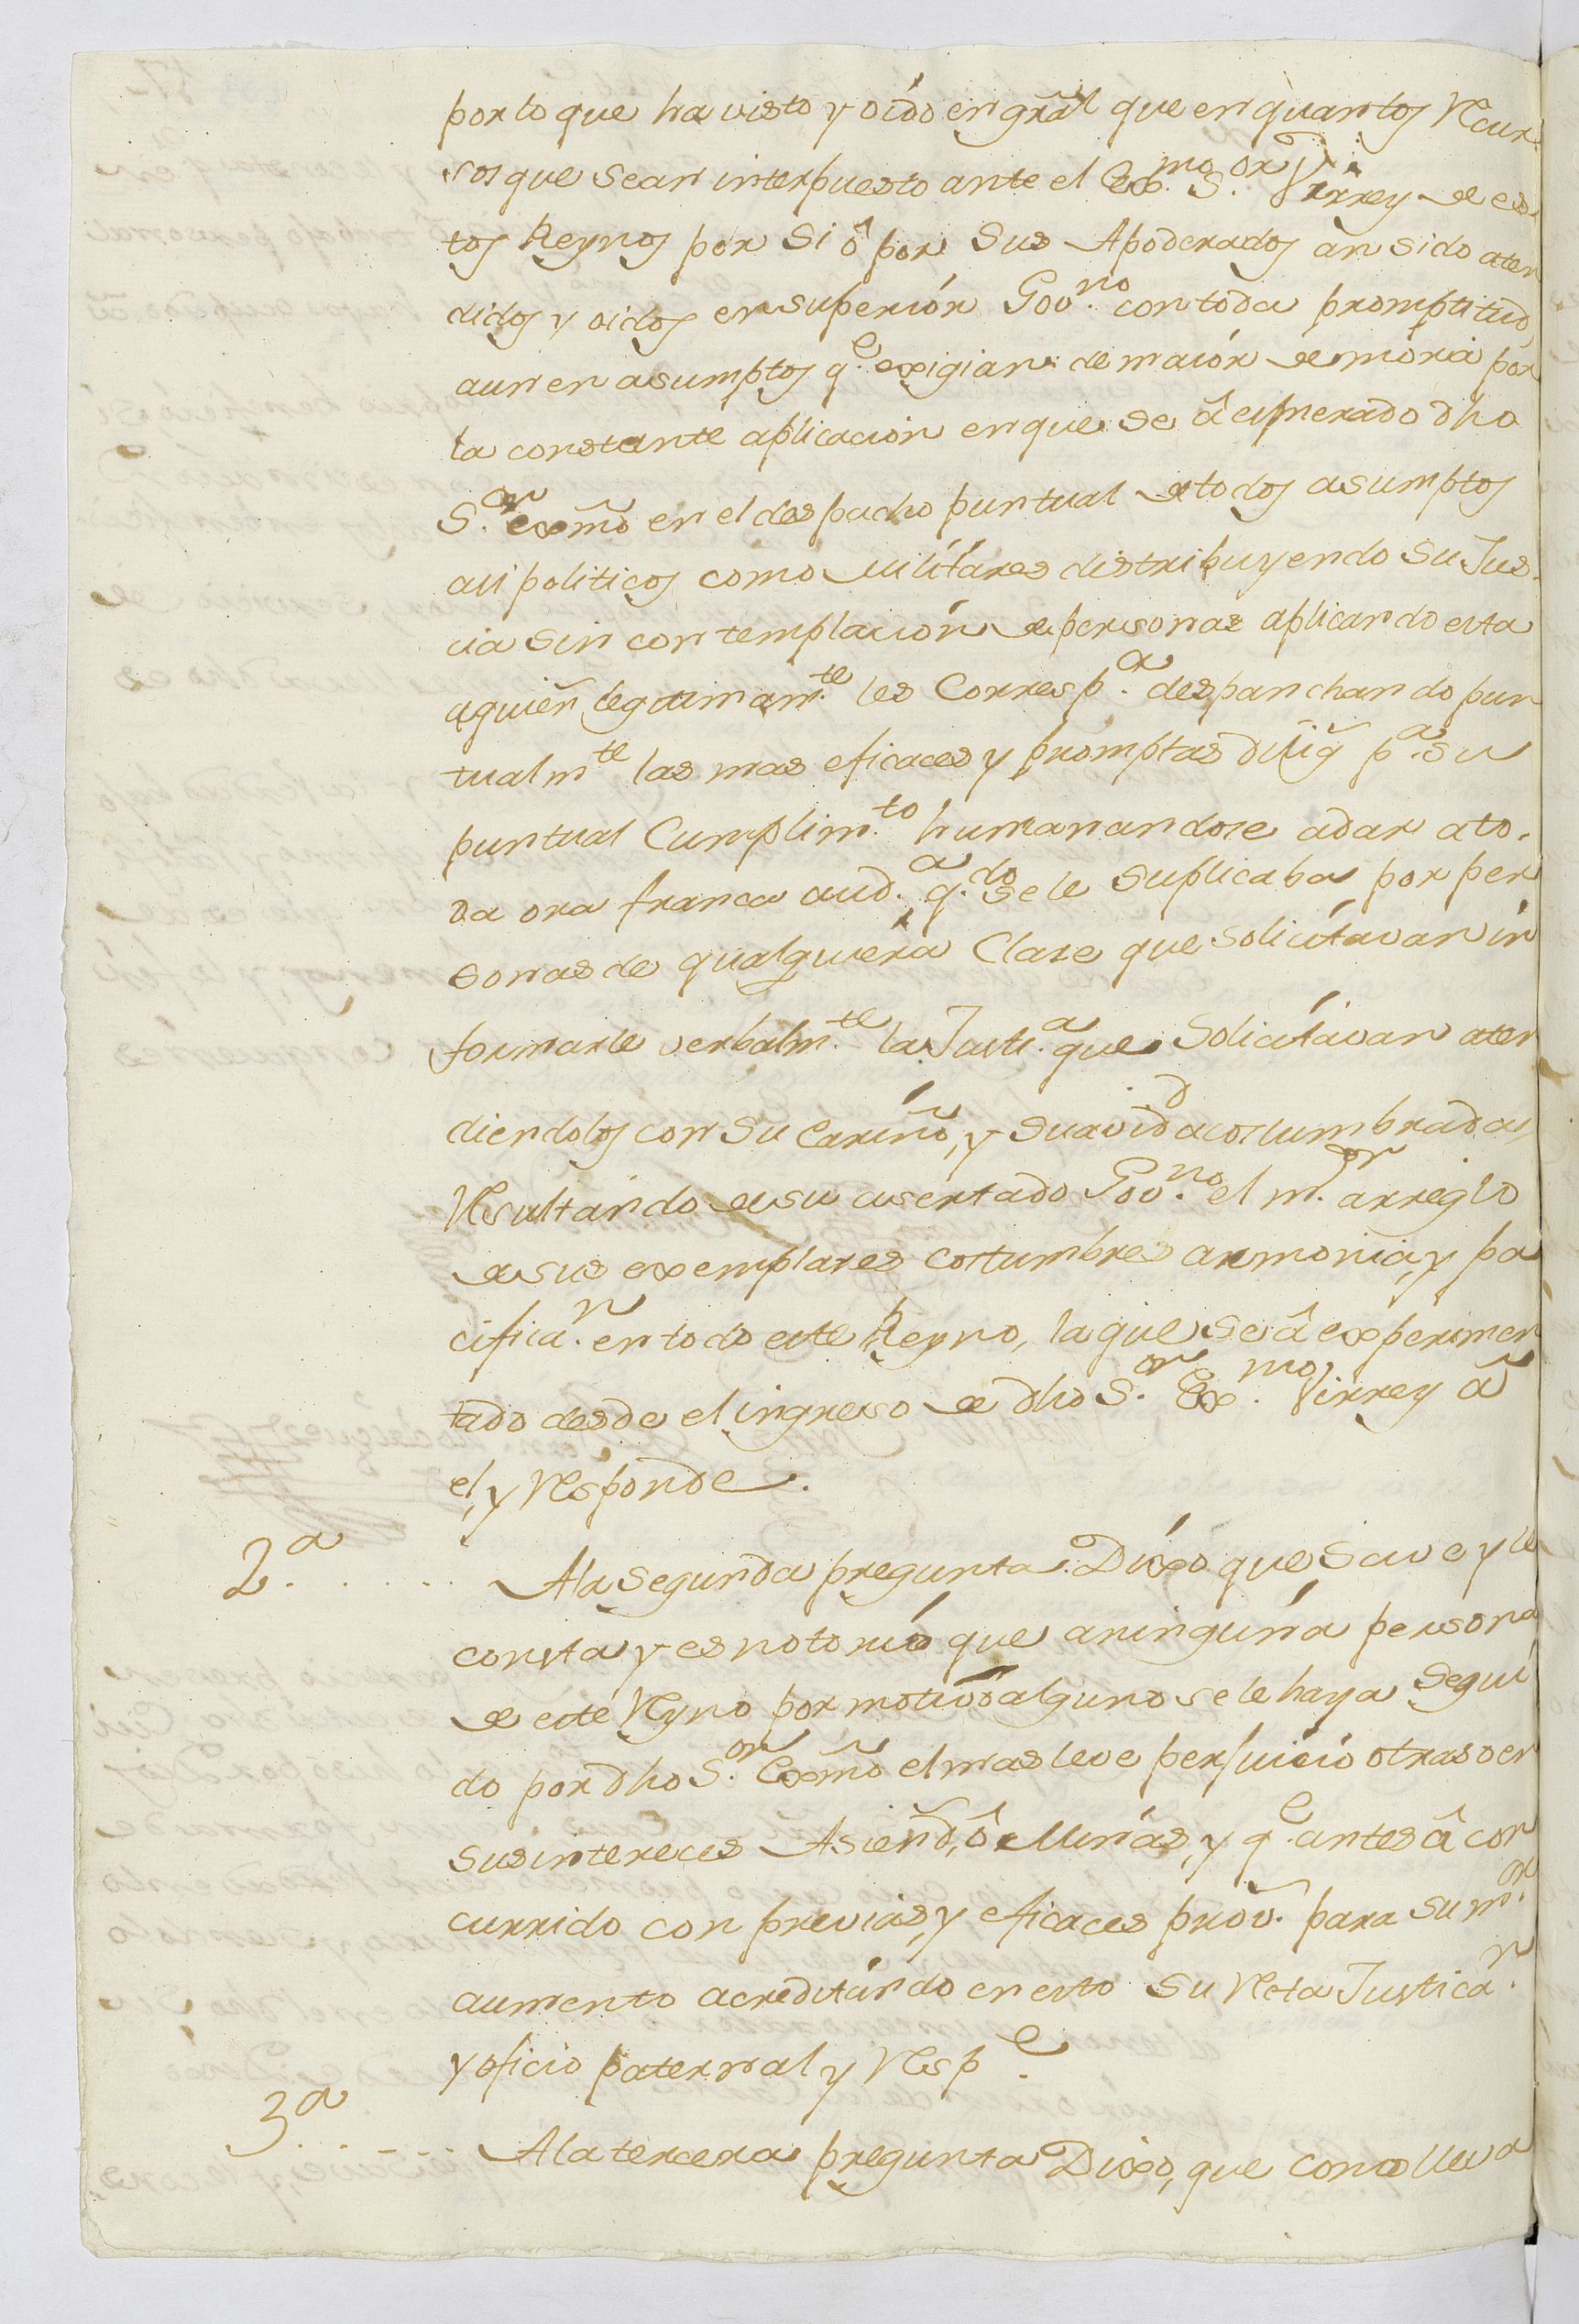 por lo que ha visto y oido en gral que en quantos Recur-
sos que sean interpuesto ante el Exmo Sor Virrey de es-
tos Reynos por Si ô por Sus Apoderados an sido aten
didos y oidos en superiór Govno con toda promptitud,
aun en asumptos qe exigian de maiór demóra por
la constante aplicacion en que se â esmerado dho
Sor exmo en el despacho puntual de todos asumptos
asi politicos como militáres distribuyendo su Jus-
cia sin contemplación de personas aplicando esta
a quien legitimamte les Correspa despanchando pun
tualmte las mas eficaces y promptas dilig pa su
puntual Cumplimto humanandose a dar a to-
da ora franca auda qdo se le Suplicaba por per
sonas de qualquiéra Clase que solicitavan in
formarle verbalmte la Justa que Solicitávan aten
diendolos con su Cariño, y suavidd acostumbradas,
Resultándo de su asertado Govno el mor arreglo
de sus exemplares costumbres armonia, y pa
cifican en todo este Reyno, la que se â experimen
tado desde el ingreso de dho Sor Exmo Virrey â
el, y Responde.
2a . . . . . A la segunda pregunta Dixo que Save y le
consta y es notorio que a ningúna persona
de este Reyno por motivo alguno se le haya segui
do por dho Sor Exmo el mas leve perjuicio otraso en
sus intereces Asiend, ô Minas, y qe antes â con
currido con previas, y eficaces prov. para su mor
aumento acreditándo en esto su Reta Justican
y oficio paternal y Respe
3a . . . . . A la tercera pregunta Dixo, que como lleva